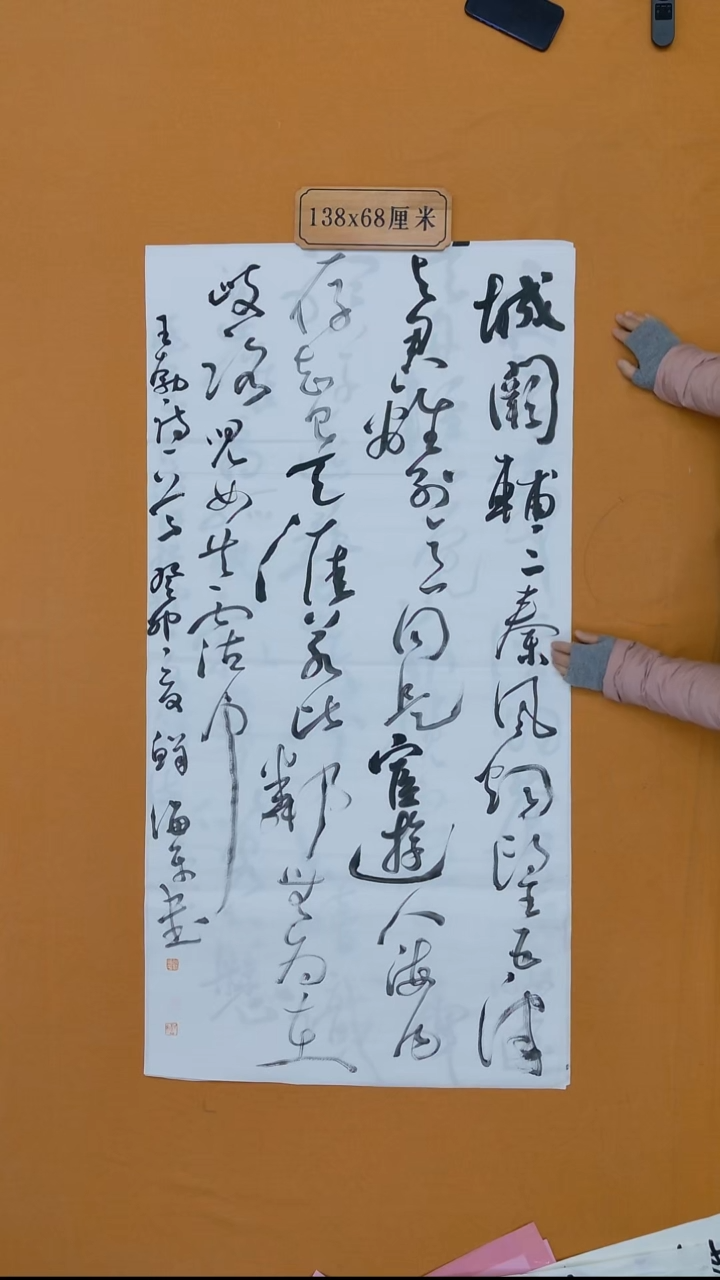 138x68厘米
城闕輔三秦風烟望五津
与君離別意同是宦遊人海内
存知己天涯若比鄰無為在
岐路兒女共霑巾
王勃詩一首癸卯夏鲜海东書